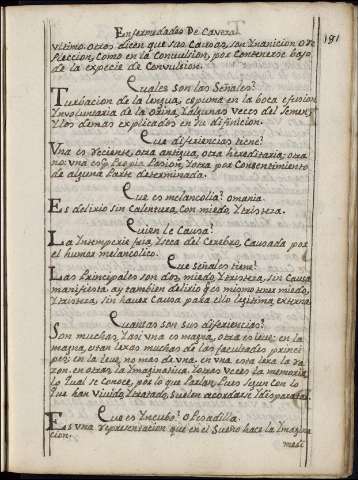 Enfermedades De Caveza.
191
ultimo. otros dicen que sus Causas, son Ynanicion o re
plecion, Como en la Convulsion, por Contenerse bajo
de la especie de Convulsion.
Cuales son las Señales?
Turbacion de la lengua, espuma en la boca efusion
Involuntaria de la orina, Yalgunas veces del Semen,
Ylos demas explicados en su difinicion.
Que diferiencias tiene?
Una es reciente, otra antigua, otra hereditaria, otra
no: una es Propia Pasion, Yotra por Consentimiento
de alguna Parte determinada.
Que es melancolia? o mania.
Es delirio sin Calentura, Con miedo, Ytristeza.
Quien le Causa?
La Intemperie fria, Yseca del Cerebro, Causada por
el humor melancolico.
Que Señales tiene?
Las Principales son dos, miedo, Ytristeza, sin Causa
manifiesta. ay tambien delirio, q es mismo tener miedo,
Ytristeza, sin haver Causa para ello legitima, externa.
Cuantas son sus diferiencias?
Son muchas, Yasi una es magna, otra es leve; en la
magna, estan lexas muchas de las facultades princi
pes; en la leve, no mas de una. en una esta lexa la ra
zon, en otras la Imaginatica, Yotras veces la memoria
lo Qual se Conoce, por lo que Parlan, Pues segun Con lo
que han Vivido, Ytratado, Suelen acordarse, Ydisparatar.
Que es Yncubo? o Pesadilla.
Es una representacion que en el Sueño hace la Imagina
cion.
mest